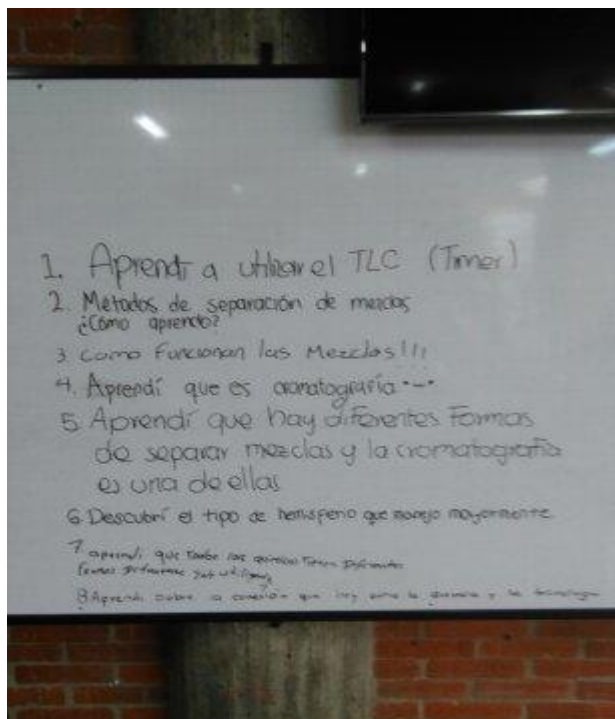 1. Aprendí a utilizar el TLC (Timer)
2. Métodos de separación de mezclas
¿Cómo aprendo?
3 como Funcionan las Mezclas!!!
4. Aprendí que es cromatografía ·-·
5 Aprendí que hay diferentes Formas
de separar mezclas y la cromatografía
es una de ellas
6 Descubrí el tipo de hemisferio que manejo mayormente.
7 aprendí que
8 Aprendí sobre la conexión que hay entre la y la tecnología